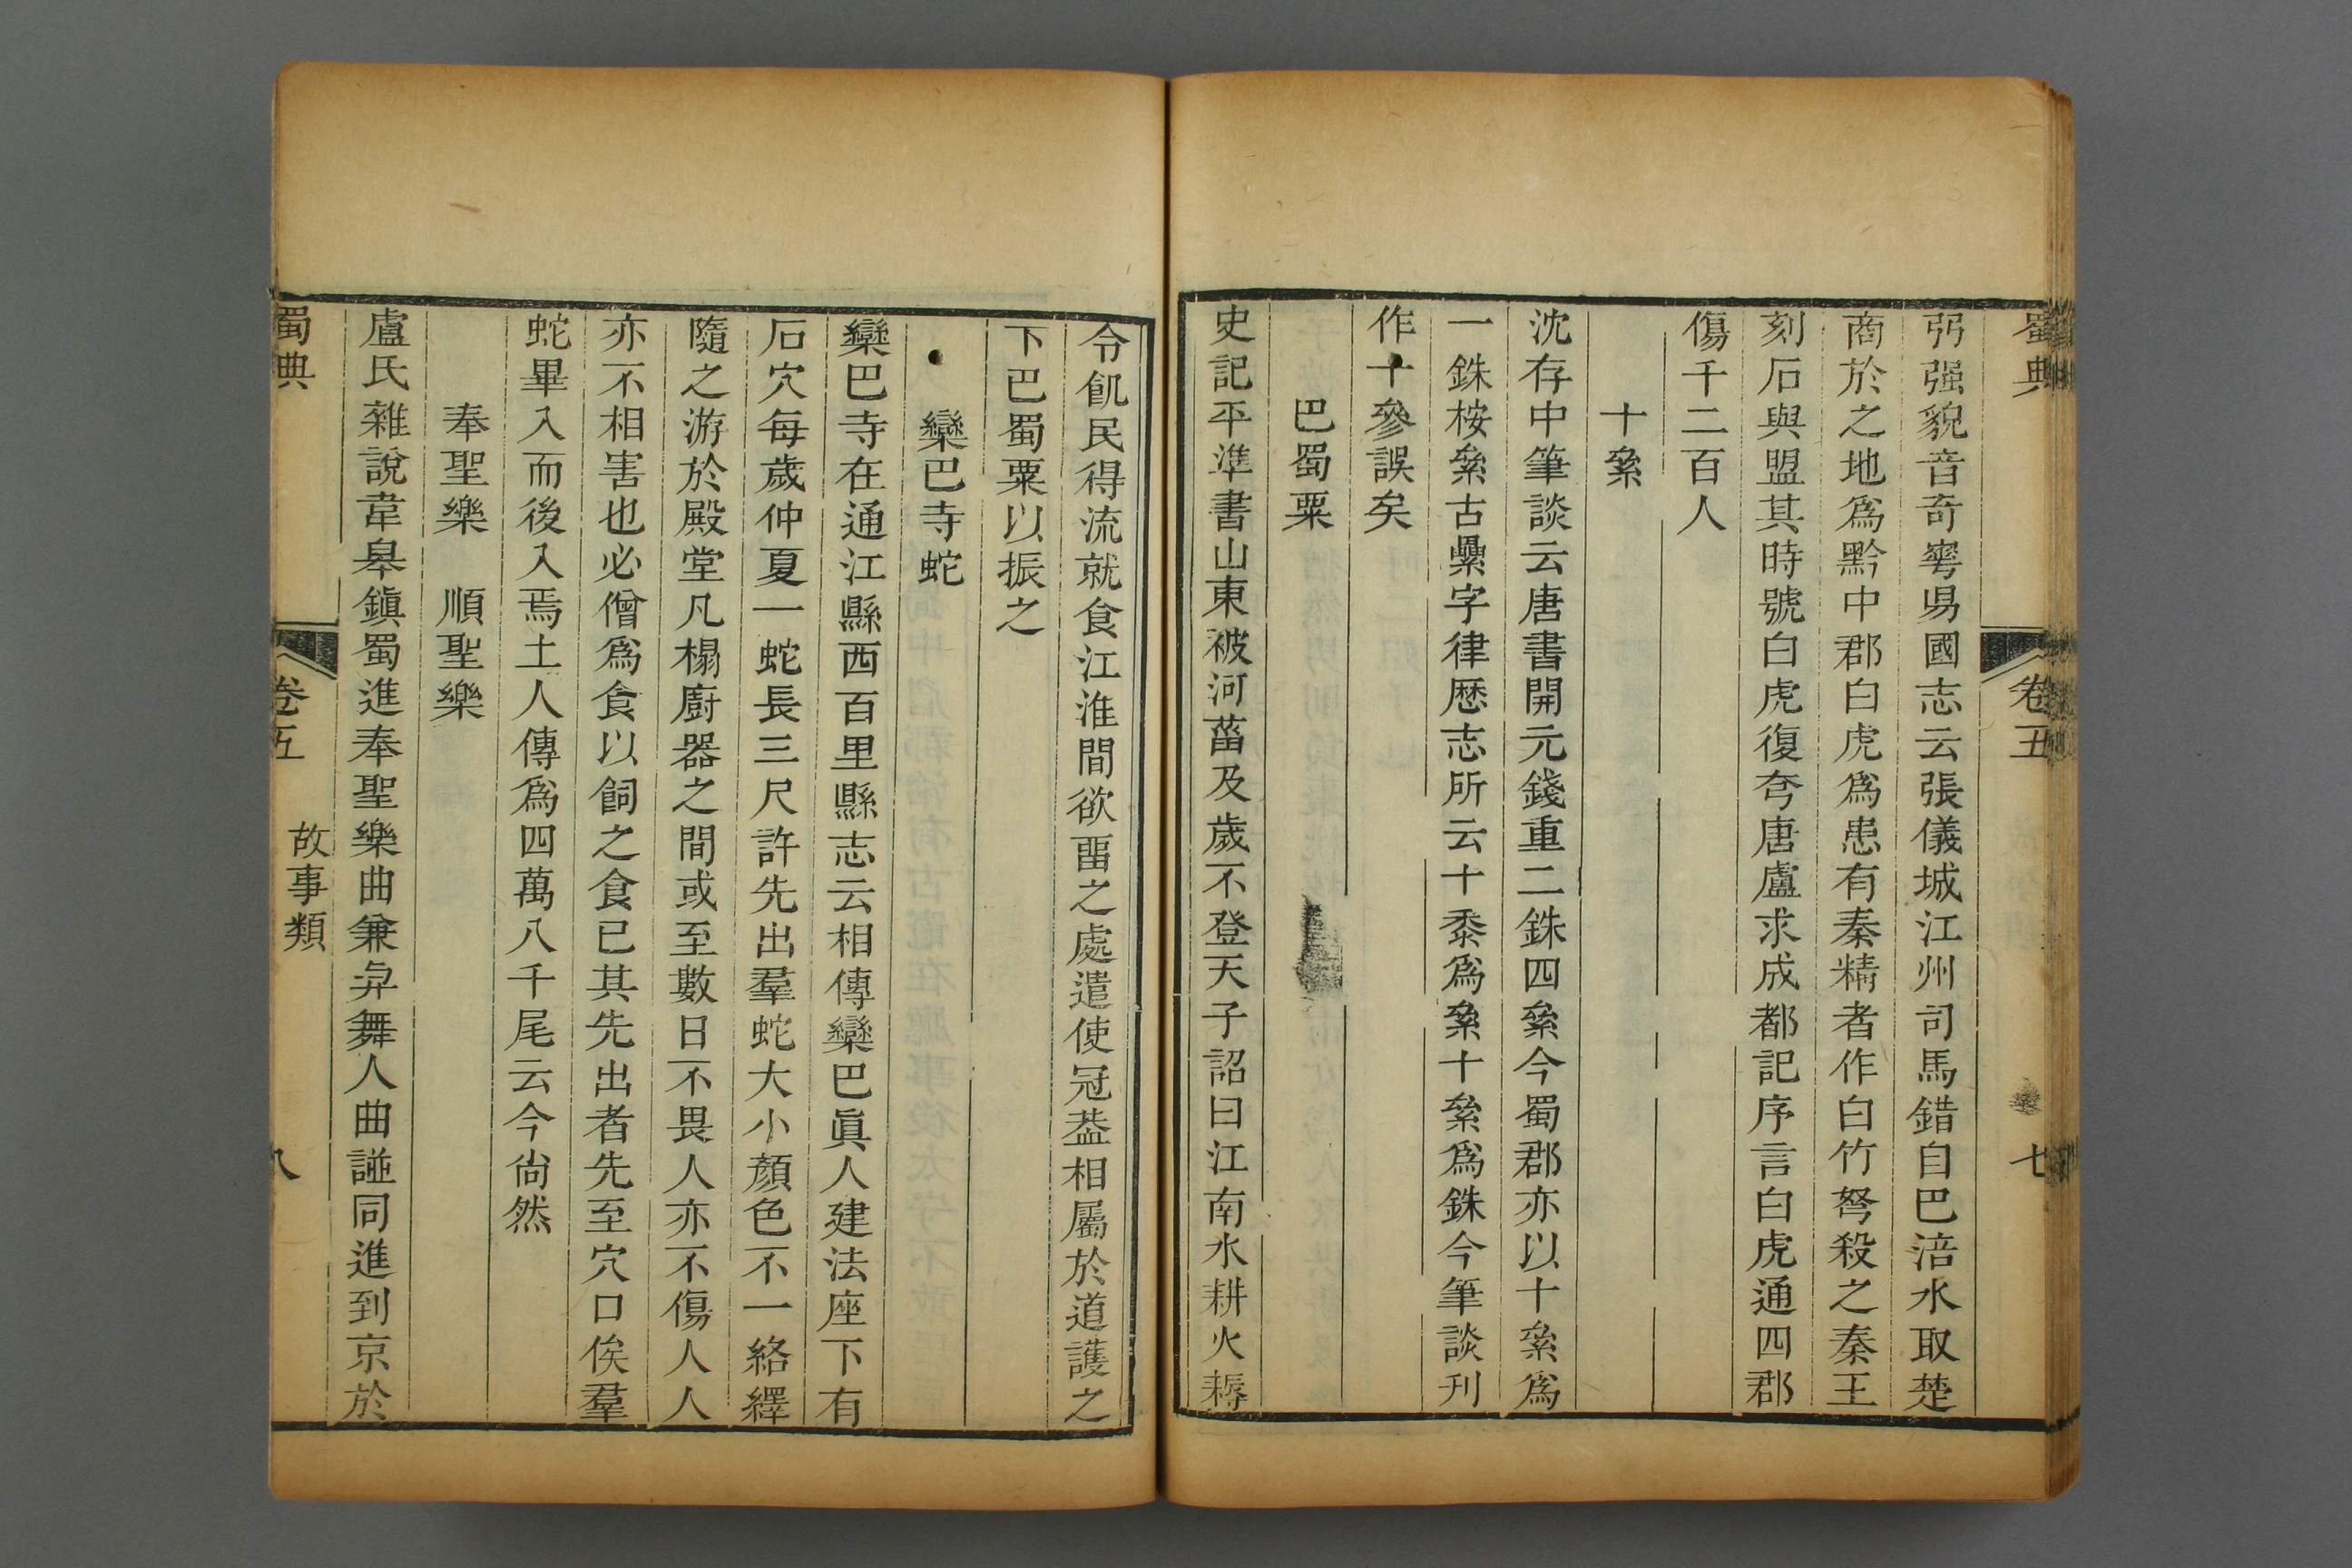 蜀典
卷五
七
弜强貌音奇寄昜國志云張儀城江州司馬錯自巴涪水取楚
商於之地爲黔中郡白虎爲患有秦精者作白竹弩殺之秦王
刻石與盟其時號白虎復夸唐盧求成都記序言白虎通四郡
傷千二百人
十絫
沈存中筆談云唐書開元錢重二銖四絫今蜀郡亦以十絫爲
一銖桉絫古纍字律歷志所云十黍爲絫十絫爲銖今筆談刋
作十參誤矣
巴蜀粟
史記平準書山東被河菑及歲不登天子詔曰江南水耕火耨
令飢民得流就食江淮間欲畱之處遣使冠葢相屬於道護之
下巴蜀粟以振之
欒巴寺蛇
欒巴寺在通江縣西百里縣志云相傳欒巴眞人建法座下有
石穴每歲仲夏一蛇長三尺許先出羣蛇大小顏色不一絡繹
隨之游於殿堂凡榻廚器之間或至數日不畏人亦不傷人人
亦不相害也必僧爲食以飼之食已其先出者先至穴口俟羣
蛇畢入而後入焉土人傳爲四萬八千尾云今尙然
奉聖樂　順聖樂
盧氏雜說韋臯鎭蜀進奉聖樂曲兼舁舞人曲譜同進到京於
蜀典
卷五
故事類
八